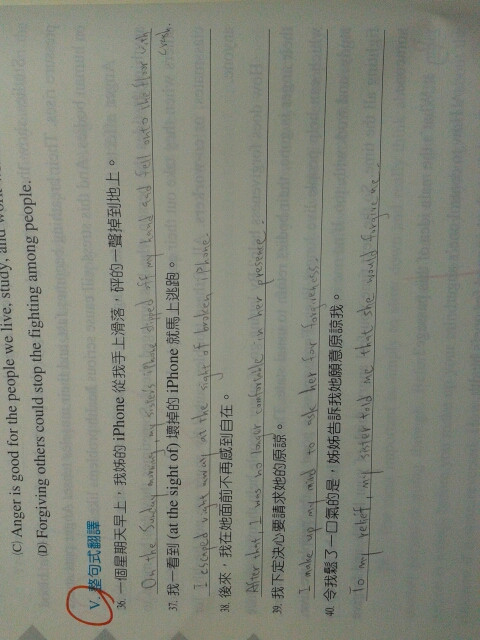 (C) Anger is good for the people we live, study, and work
(D) Forgiving others could stop the fighting among people.
V. 整句式翻譯
36. 一個星期天早上，我姊的 iPhone 從我手上滑落，砰的一聲掉到地上。
On the Sunday morning, my sister's iPhone slipped off my hand and fell onto the floor with
crash.
37. 我一看到 (at the sight of) 壞掉的 iPhone 就馬上逃跑。
I escaped right away at the sight of broken iPhone.
38. 後來，我在她面前不再感到自在。
After that, I was no longer comfortable in her presence.
39. 我下定決心要請求她的原諒。
I make up my mind to ask her for forgiveness.
40. 令我鬆了一口氣的是，姊姊告訴我她願意原諒我。
To my relief, my sister told me that she would forgive me.